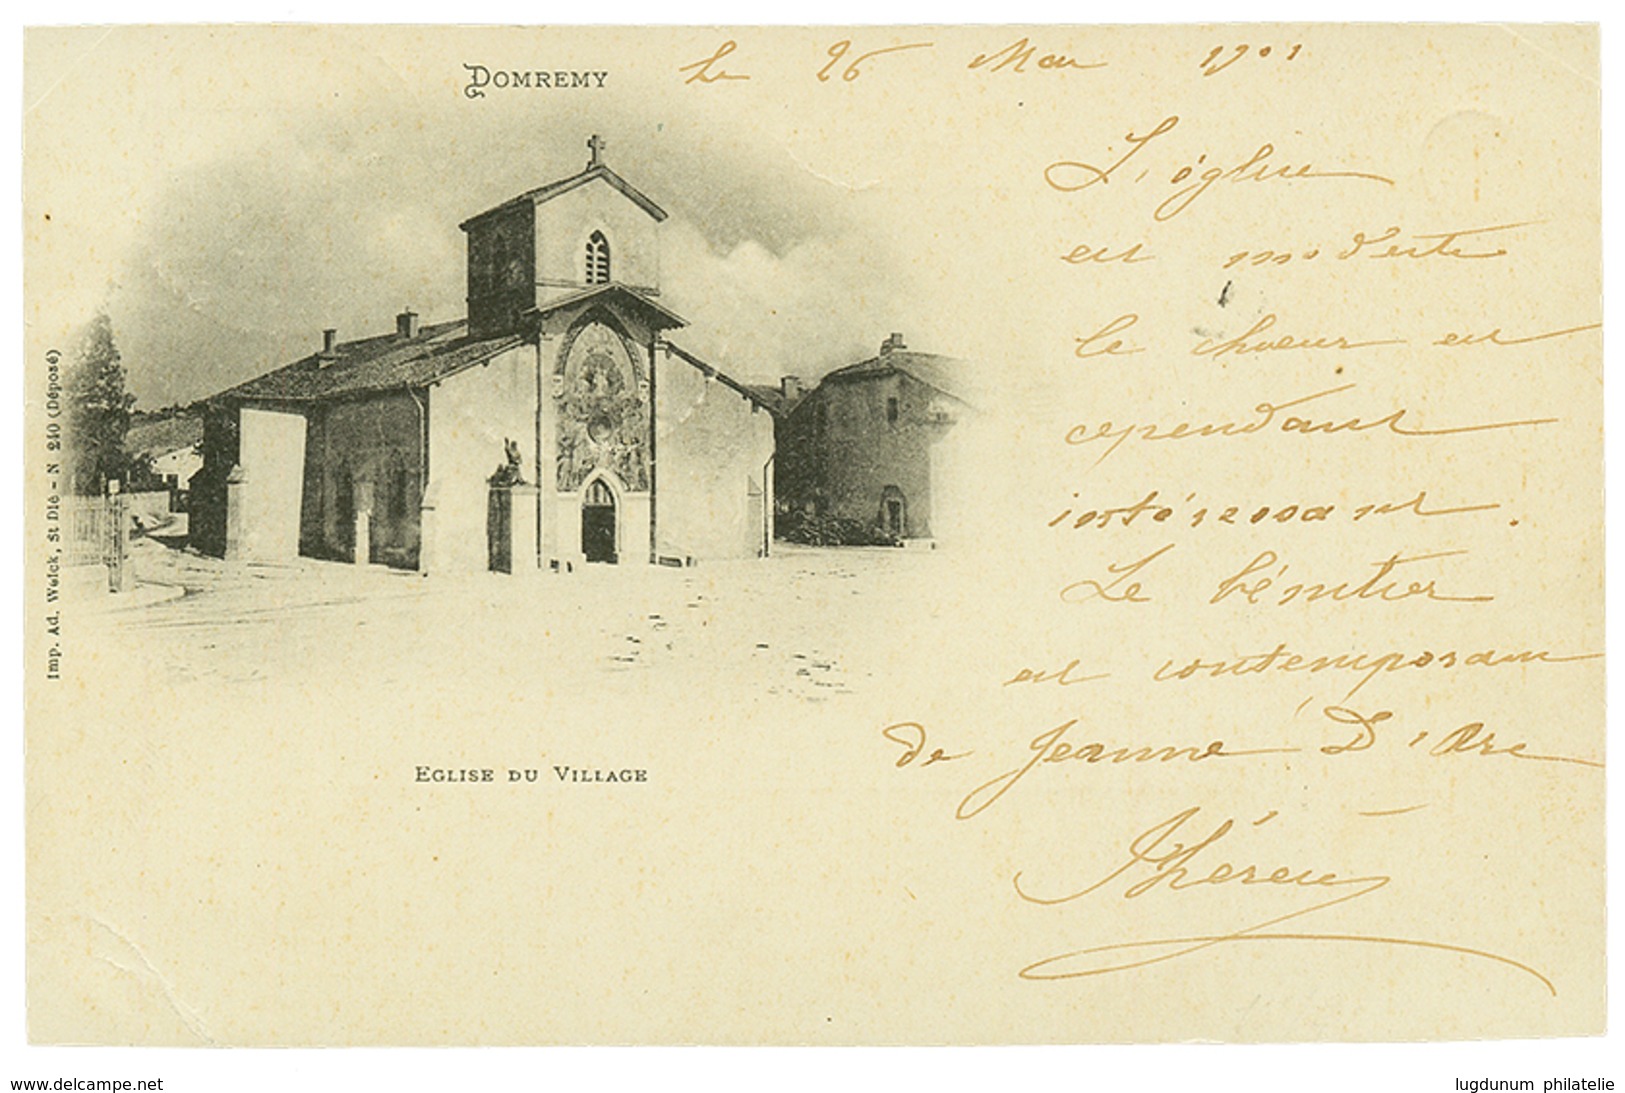 DOMREMY
Le 26 Mai 1901
L'église
est modeste
le chœur est
cependant
intéressant.
Le bénitier
est contemporain
de Jeanne D'Arc
Thérèse
EGLISE DU VILLAGE
Imp. Ad. Weick, St Dié - N 240 (Déposé)
www.delcampe.net
lugdunum philatelie